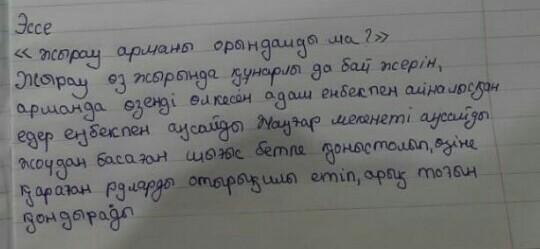 Эссе
« Жырау арманы орындалды ма?»
Жырау өз жырында құнарлы да бай жерін,
арманда өзенді өлкесін адам еңбекпен айналысқан
егер еңбекпен аусайды Жауғар мекенеті аусайды
жоудан басаған шығыс бетпе қоныстолып, өзіне
қараған руларды отырықшы етіп, арық тоғын
қондырады